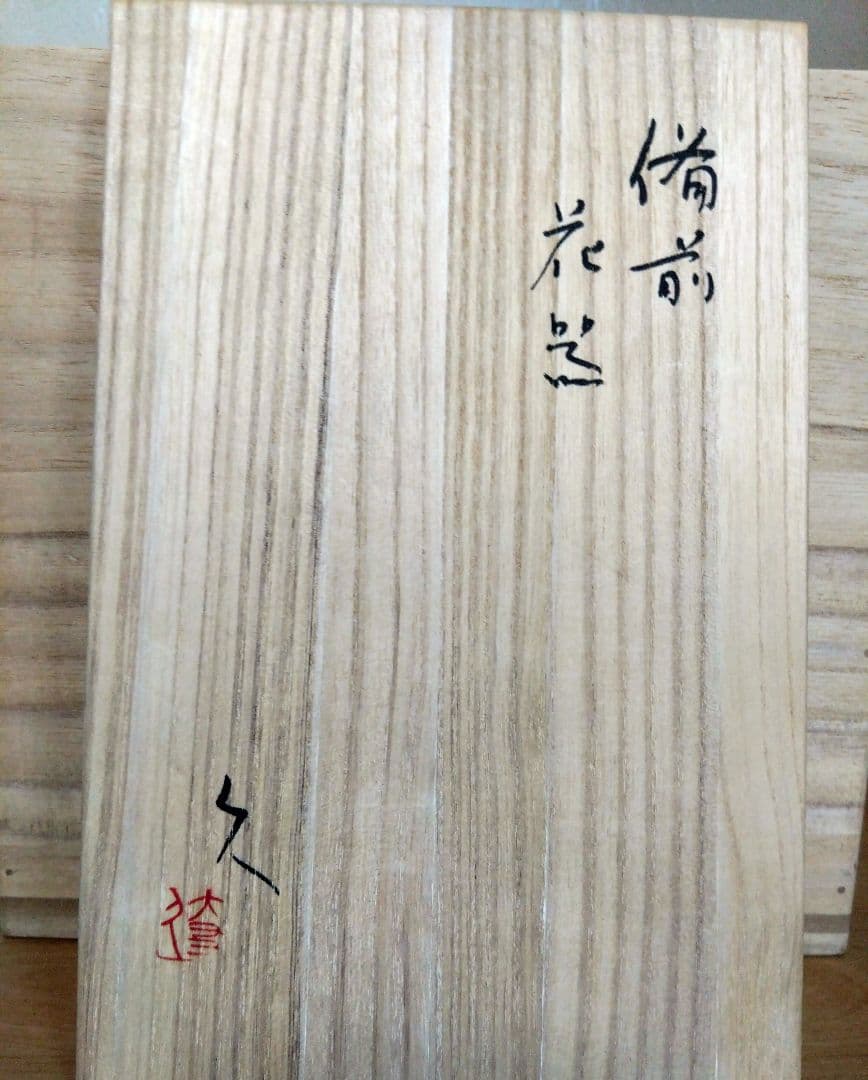 備前
花器
久